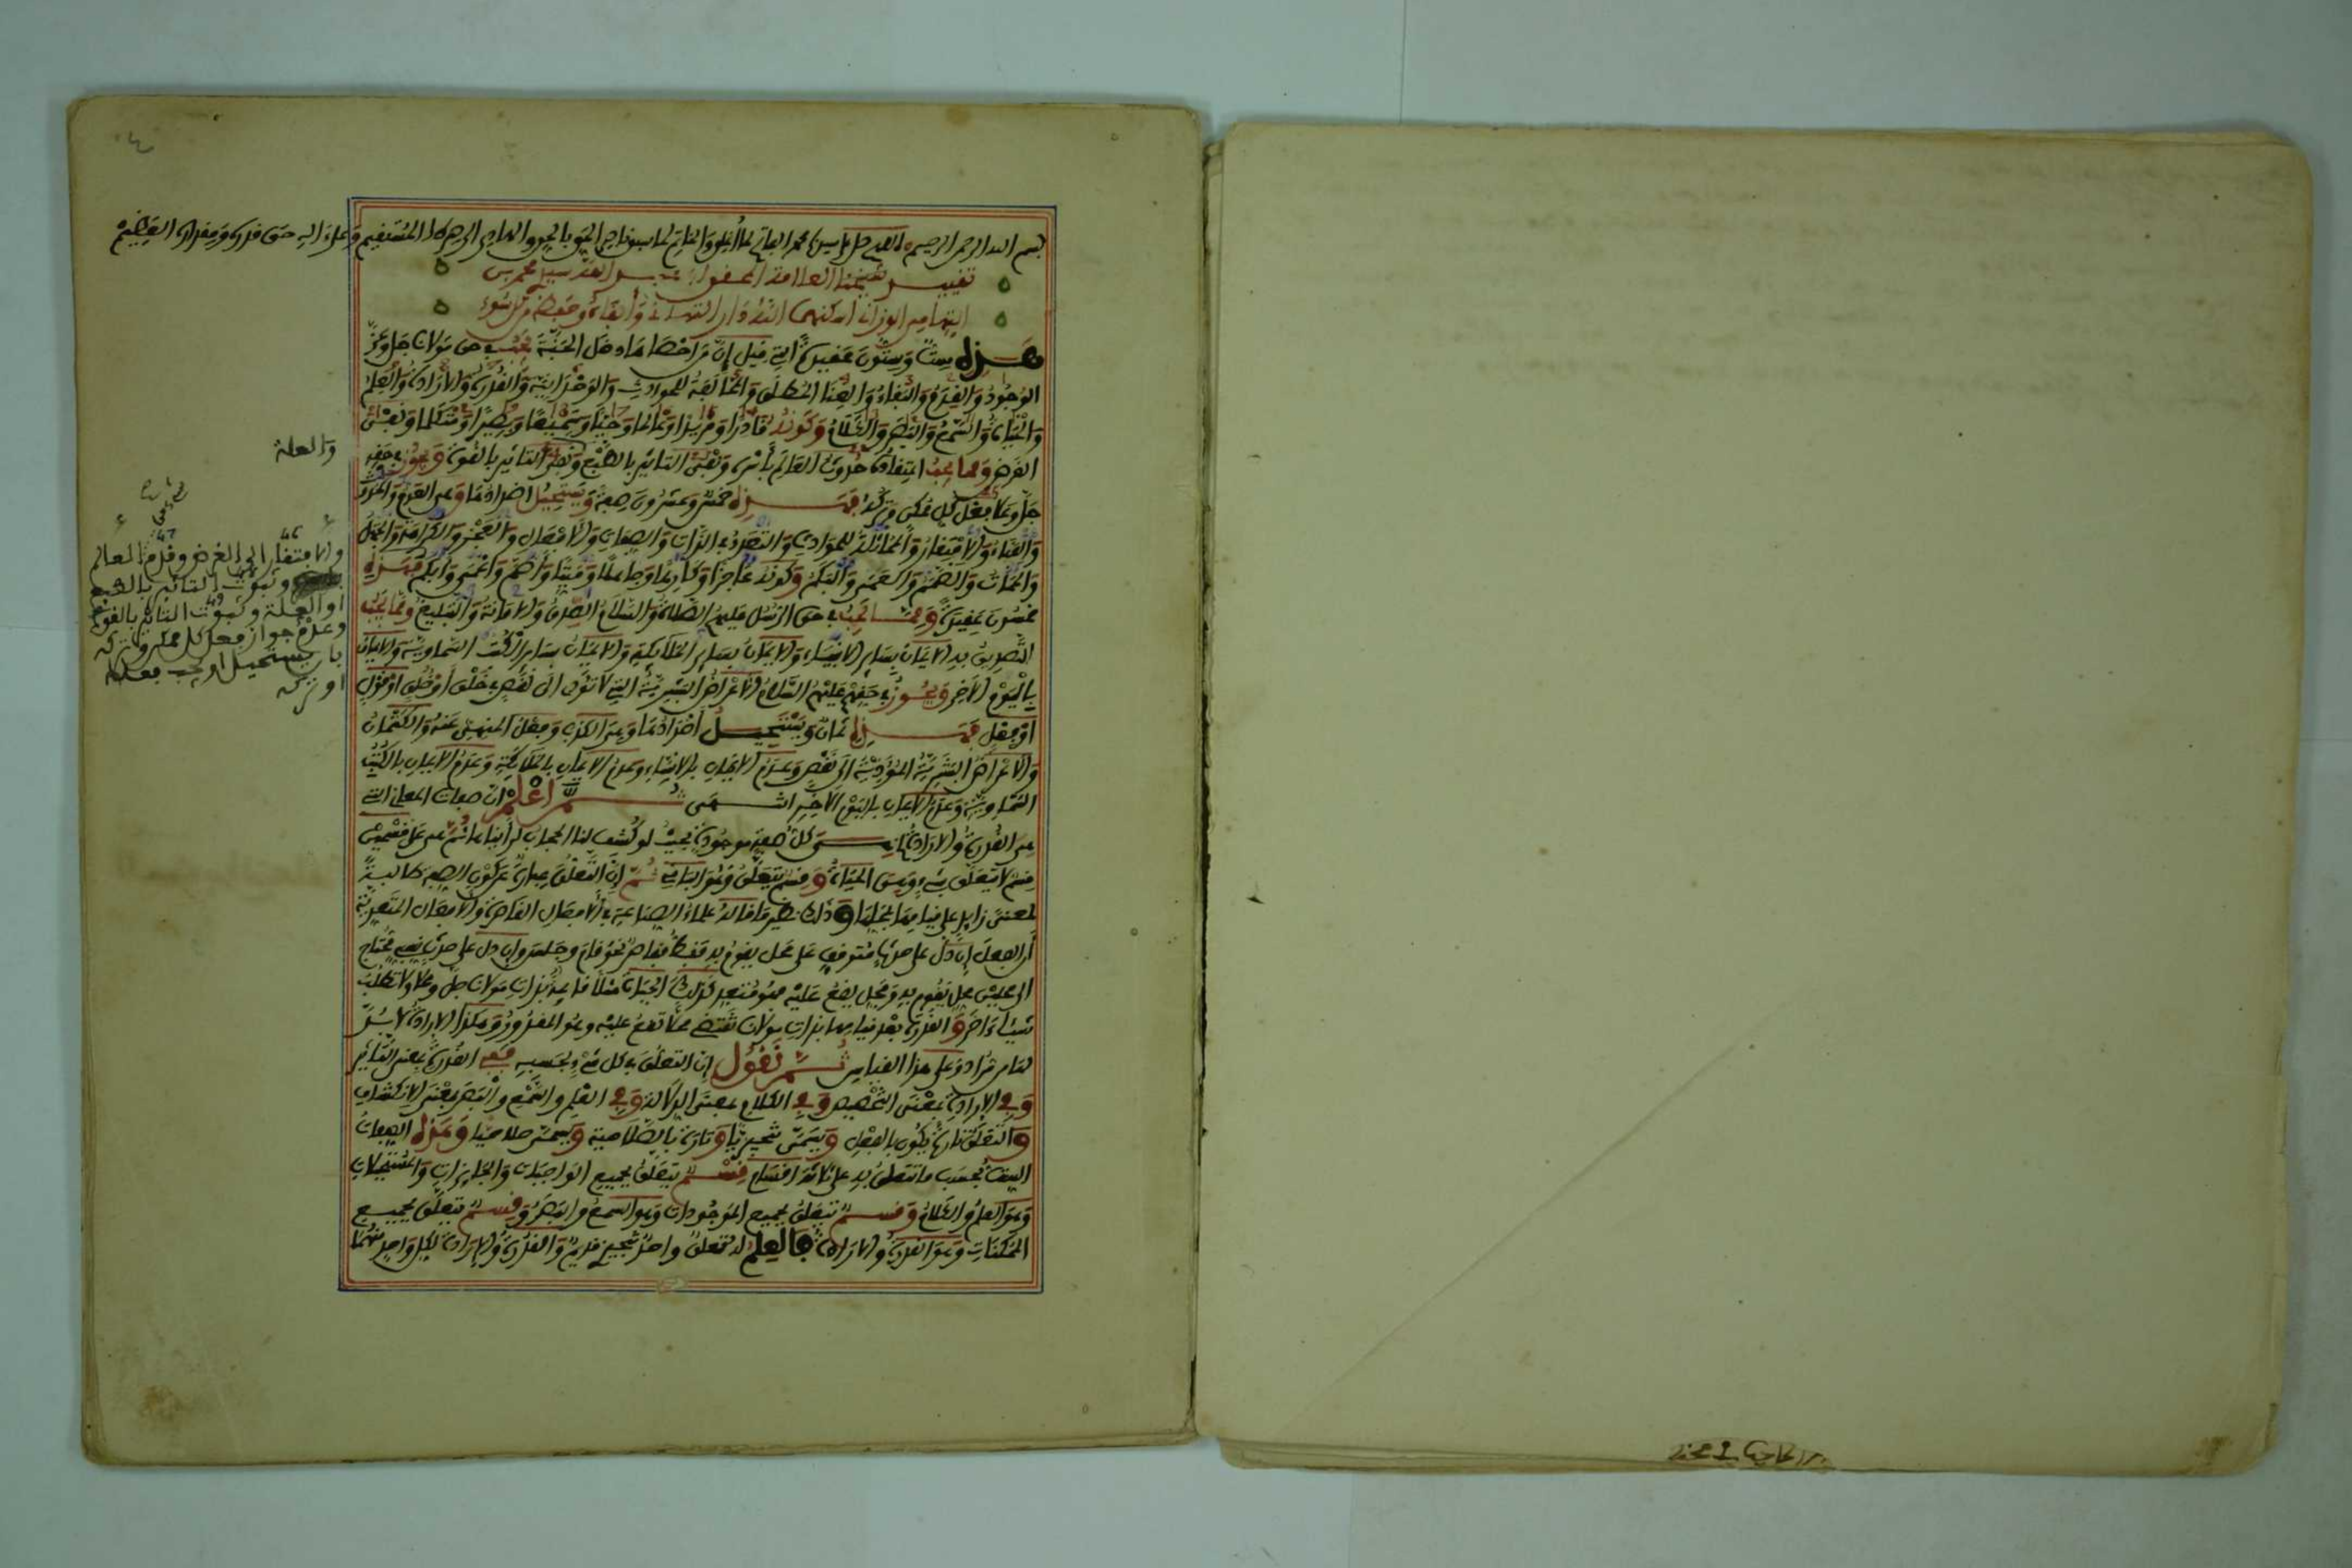 بسم الله الرحمن الرحيم اللهم صل على سيدنا محمد الفاتح لما أغلق والخاتم لما سبق ناصر الحق بالحق والهادي إلى صراطك المستقيم وعلى آله حق قدره ومقداره العظيم
تقييد شيخنا العلامة سيدي محمد بن
أسكنهما الله دار التهاني
هذه ست وستون عقيدة التي قيل إن من أحصاها دخل الجنة يجب في حق مولانا جل وعز
الوجود والقدم والبقاء والغنا المطلق والمخالفة للحوادث والوحدانية والقدرة والإرادة والعلم
والحياة والسمع والبصر والكلام وكونه قادرا ومريدا وعالما وحيا وسميعا وبصيرا ومتكلما ونفي
الغرض ومما يجب اعتقاده حدوث العالم بأسره ونفي التاثير بالطبع ونفي التاثير بالقوة ويجوز في حقه
جل وعلا فعل كل ممكن وتركه فهذه خمس وعشرون صفة ويستحيل أضدادها وهي العدم والحدوث
والفناء والافتقار والمماثلة للحوادث والتعدد في الذات والصفات والأفعال والعجز والكراهة والجهل
والممات والصمم والعمى والبكم وكونه عاجزا وكارها وجاهلا وميتا وأصم وأعمى وأبكم فهذه
خمسون عقيدة ومما يجب في حق الرسل عليهم الصلاة والسلام الصدق والامانة والتبليغ ومما يجب
التصديق به الايمان بساير الانبياء والايمان بساير الملائكة والايمان بساير الكتب السماوية والايمان
باليوم الآخر ويجوز في حقهم عليهم السلام الأعراض البشرية التي لا تؤدي الى نقص في خلق أو خلق او قول
او فعل فهذه ثمان ويستحيل أضدادها وهي الكذب وفعل المنهي عنه والكتمان
والاعراض البشرية المؤدية الى نقص وعدم الايمان بالانبياء وعدم الايمان بالملائكة وعدم الايمان بالكتب
السماوية وعدم الايمان باليوم الآخر انتهى ثم اعلم ان صفات المعاني التي
هي القدرة والارادة كل صفة موجودة بحيث لو كشف لنا الحجاب لرأيناها ثم هي على قسمين
قسم لا يتعلق بشيء وهي الحياة وقسم يتعلق وهو الباقي ثم إن التعلق عبارة عن كون الصفة طالبة
لمعنى زايد على قيامها بمحلها وذلك نظير ما قاله علماء الصناعة في الأفعال القاصرة والأفعال المتعدية
أن الفعل إن دل على حدث متوقف على محل يقوم به فقط فقاصر نحو قام وجلس وإن دل على حدث يحتاج
الى محلين محل يقوم به ومحل يقع عليه فهو متعد كذلك الحياة مثلا قايمة بذات مولانا جل وعلا ولا تطلب
شيئا ءاخر والقدرة بعد قيامها بذات مولانا تقتضي محلا تقع عليه وهو المقدور وهكذا الإرادة لا بد
لها من مراد وعلى هذا القياس ثم نقول إن التعلق في كل شيء بحسبه ففي القدرة بمعنى التاثير
وفي الإرادة بمعنى التخصيص وفي الكلام بمعنى الدلالة وفي العلم والسمع والبصر بمعنى الانكشاف
والتعلق تارة يكون بالفعل ويسمى تنجيزيا وتارة بالصلاحية ويسمى صلاحيا وهذه الصفات
الست بحسب ما تتعلق به على ثلاثة اقسام قسم يتعلق بجميع الواجبات والجايزات والمستحيلات
وهو العلم والكلام وقسم يتعلق بجميع الموجودات وهو السمع والبصر وقسم يتعلق بجميع
الممكنات وهو القدرة والارادة فالعلم له تعلق واحد تنجيزي قديم والقدرة والإرادة لكل واحد منهما
والعلة
والافتقار الى الغرض وقدم العالم
وثبوت التاثير بالطبع
او العلة وثبوت التاثير بالقوة
وعدم جواز فعل كل ممكن وتركه
بان يستحيل او يجب فعله
او تركه